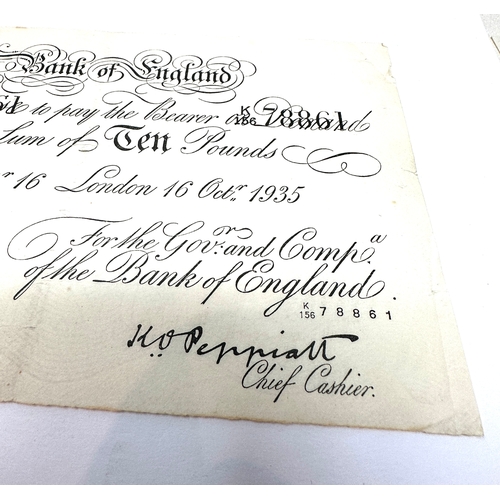 Bank of England
61 to pay the Bearer on Demand K/156 78861
Sum of Ten Pounds
r 16 London 16 Octr. 1935
For the Govr. and Compa.
of the Bank of England.
K/156 78861
K O Peppiatt
Chief Cashier.